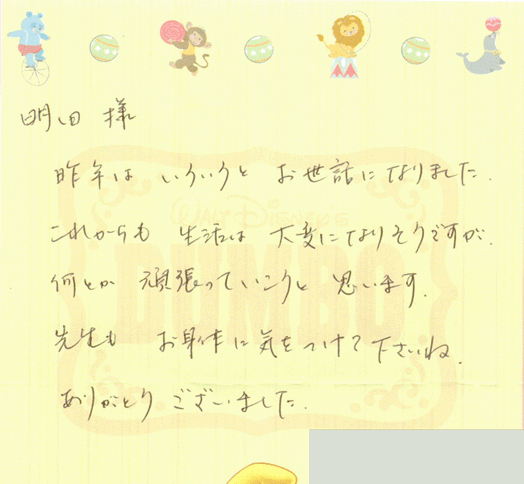 明田 様
昨年は いろいろと お世話になりました.
これからも 生活は 大変になりそうですが.
何とか 頑張っていこうと 思います.
先生も お身体に気をつけて下さいね.
ありがとうございました.
WALT DISNEY'S
DUMBO